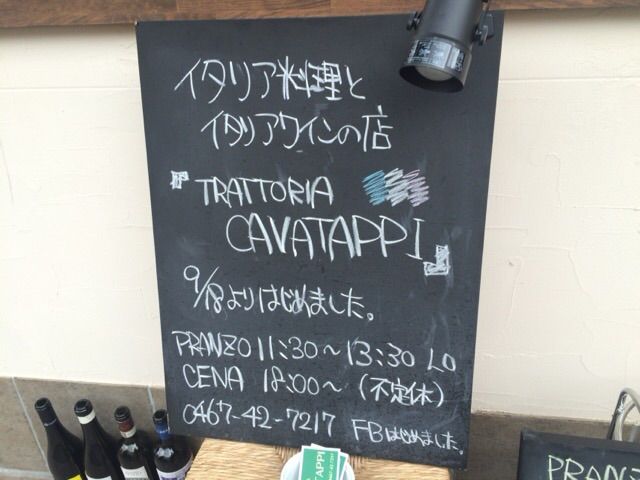 イタリア料理と
イタリアワインの店
『TRATTORIA
CAVATAPPI』
9/18よりはじめました。
PRANZO 11:30～13:30 LO
CENA 18:00～(不定休)
0467-42-7217 FBはじめました。
TAPPI
PRANZO